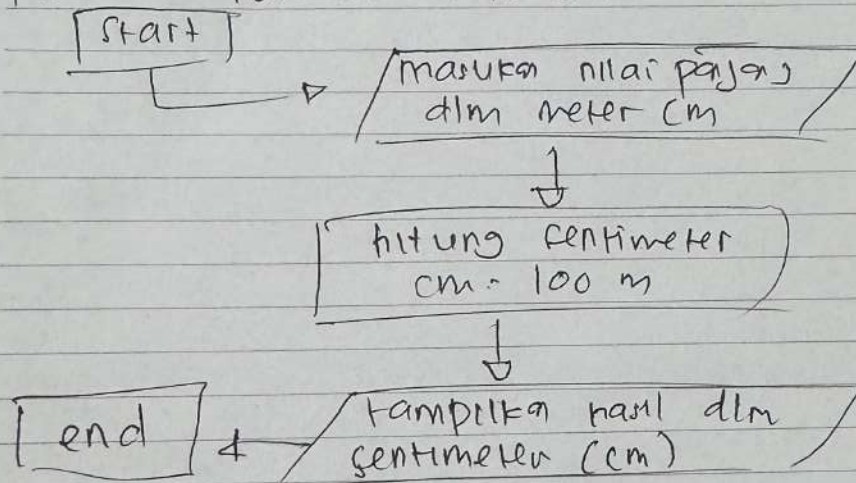 Start
masukan nilai panjang
dlm meter Cm
hitung centimeter
cm = 100 m
tampilkan hasil dlm
centimeter (cm)
end